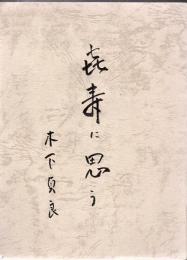 喜寿に思う
木下貞良